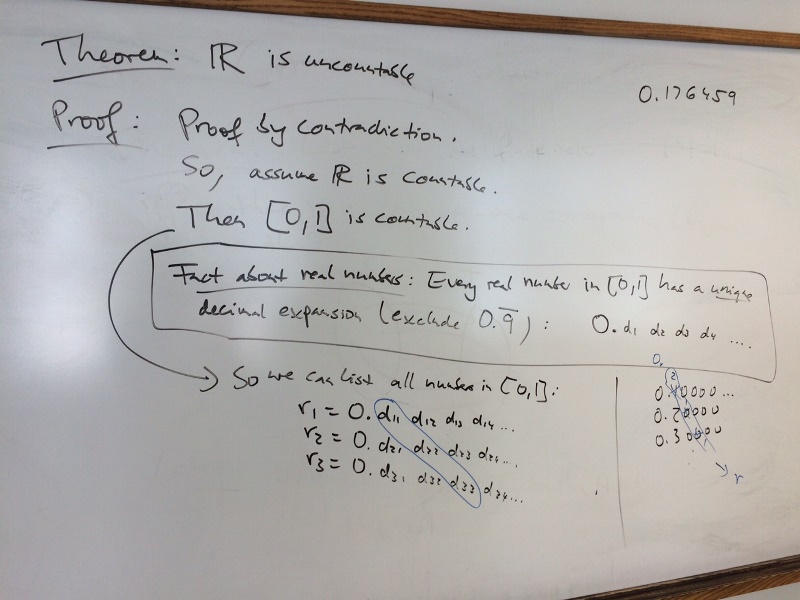 Theorem: ℝ is uncountable
0.176459
Proof: Proof by contradiction.
So, assume ℝ is countable.
Then [0,1] is countable.
Fact about real numbers: Every real number in [0,1] has a unique
decimal expansion (exclude 0.9̅): 0.d₁ d₂ d₃ d₄ ....
So we can list all number in [0,1]:
r₁ = 0.d₁₁ d₁₂ d₁₃ d₁₄ ...
r₂ = 0.d₂₁ d₂₂ d₂₃ d₂₄ ...
r₃ = 0.d₃₁ d₃₂ d₃₃ d₃₄ ...
0.
2
0.10000 ...
0.20000
0.30000
r